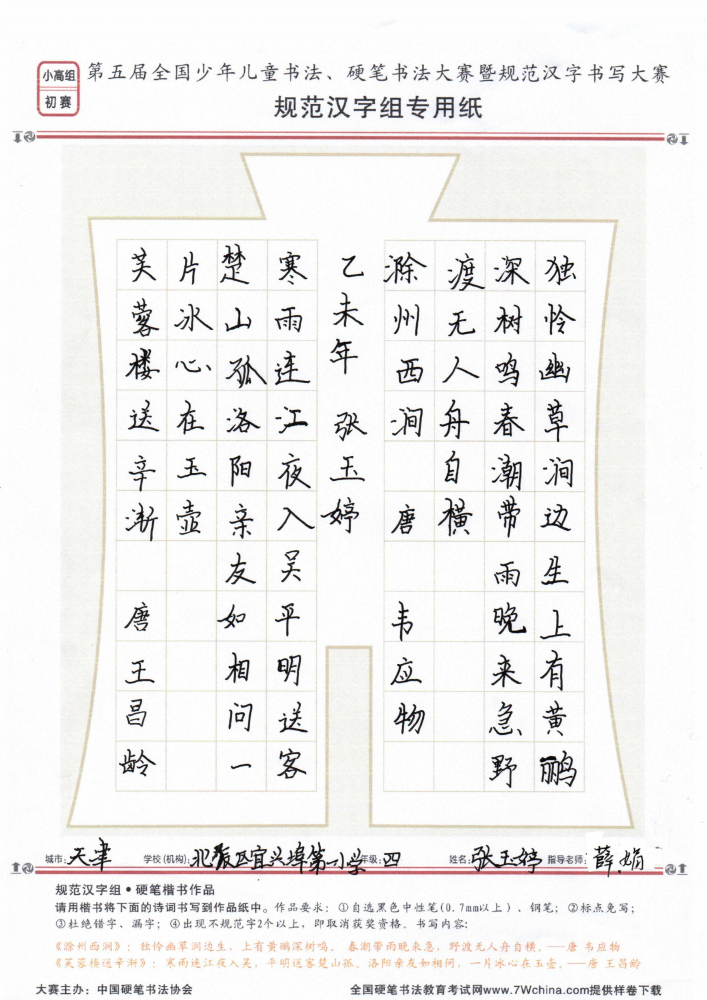 小高组
初赛
第五届全国少年儿童书法、硬笔书法大赛暨规范汉字书写大赛
规范汉字组专用纸
独怜幽草涧边生上有黄鹂
深树鸣春潮带雨晚来急野
渡无人舟自横
滁州西涧 唐 韦应物
乙未年 张玉婷
寒雨连江夜入吴平明送客
楚山孤洛阳亲友如相问一
片冰心在玉壶
芙蓉楼送辛渐 唐王昌龄
城市:天津 学校(机构):北辰区宜兴埠第一小学 年级:四 姓名:张玉婷 指导老师:薛娟
规范汉字组•硬笔楷书作品
请用楷书将下面的诗词书写到作品纸中。作品要求:①自选黑色中性笔(0.7mm以上)、钢笔;②标点免写;
③杜绝错字、漏字;④出现不规范字2个以上,即取消获奖资格。书写内容:
《滁州西涧》:独怜幽草涧边生,上有黄鹂深树鸣。 春潮带雨晚来急,野渡无人舟自横。——唐 韦应物
《芙蓉楼送辛渐》:寒雨连江夜入吴,平明送客楚山孤。洛阳亲友如相问,一片冰心在玉壶。——唐 王昌龄
大赛主办:中国硬笔书法协会 全国硬笔书法教育考试网www.7Wchina.com提供样卷下载